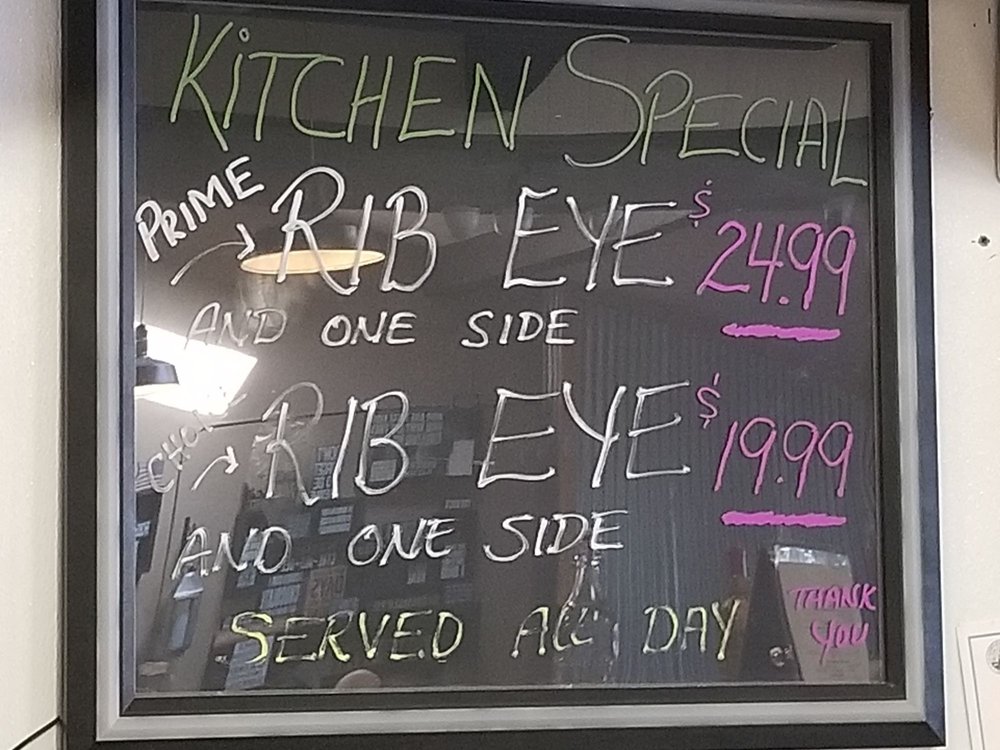 KiTCHEN SPECIAL
PRIME → RIB EYE $24.99
AND ONE SIDE
→ RIB EYE $19.99
AND ONE SIDE
SERVED ALL DAY
THANK
YOU